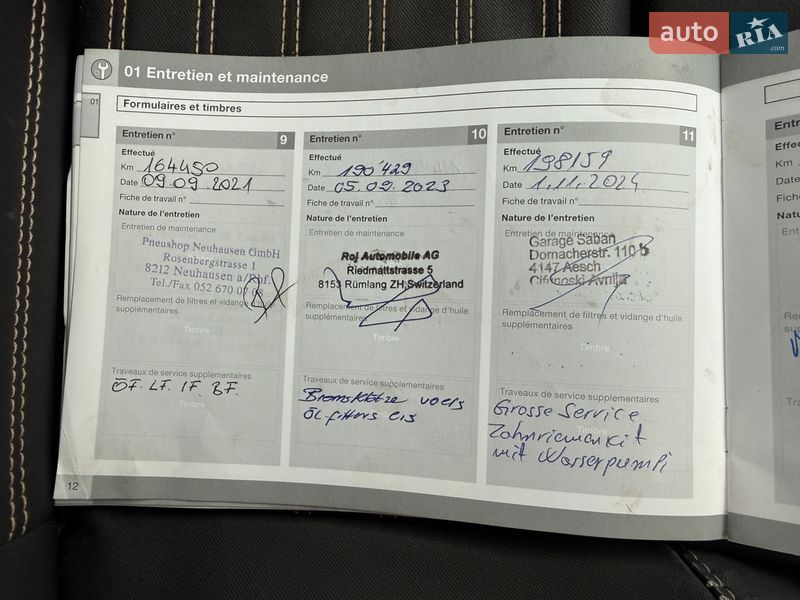 auto RIA .com
01 Entretien et maintenance
01
Formulaires et timbres
Entretien n° 9
Effectué
Km 164450
Date 09.09.2021
Fiche de travail n°
Nature de l'entretien
Entretien de maintenance
Pneushop Neuhausen GmbH
Rosenbergstrasse 1
8212 Neuhausen a/Rhf.
Tel./Fax 052 670 07 68
Remplacement de filtres et vidange
supplémentaires
Timbre
Traveaux de service supplementaires
ÖF. LF. IF. BF.
Timbre
Entretien n° 10
Effectué
Km 190'429
Date 05.09.2023
Fiche de travail n°
Nature de l'entretien
Entretien de maintenance
Roj Automobile AG
Riedmattstrasse 5
8153 Rümlang ZH, Switzerland
Remplacement de filtres et vidange d'huile
supplémentaires
Timbre
Traveaux de service supplementaires
Timbre
Entretien n° 11
Effectué
Km 198159
Date 1.11.2024
Fiche de travail n°
Nature de l'entretien
Entretien de maintenance
Garage Saban
Dornacherstr. 110 b
4147 Aesch
Remplacement de filtres et vidange d'huile
supplémentaires
Timbre
Traveaux de service supplementaires
Grosse Service
Timbre
Zahnriemenkit
mit Wasserpumpi
12
Entr
Effec
Km
Date
Fiche
Natu
Entr
Rem
supp
Trav